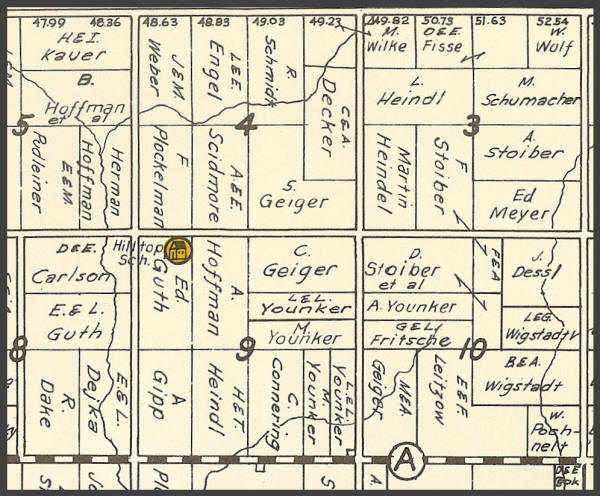 47.99 48.36 48.63 48.85 49.03 49.23 49.82 50.73 51.63 52.54
H.E.I.
Kauer
B.
Hoffman
et al
5
Pudleiner
E.E.M.
Hoffman
Herman
J.E.M.
Weber
L.E.E.
Engel
R.
Schmidt
C.E.A.
Decker
4
F
Plockelman
A.E.E.
Scidmore
S.
Geiger
M.
Wilke
O.E.E.
Fisse
W.
Wolf
L.
Heindl
M.
Schumacher
3
Martin
Heindel
F
Stoiber
A.
Stoiber
Ed
Meyer
D.E.E.
Carlson
Hilltop
Sch.
E.E.L.
Guth
8
R.
Dake
E.E.L.
Dejka
Ed.
Guth
A.
Hoffman
C.
Geiger
L.E.L.
Younker
M.
Younker
9
A
Gipp
H.E.T.
Heindl
C.
Connering
M.
Younker
L.E.L.
Younker
D.
Stoiber
et al
F.E.A
J.
Dessl
A. Younker
G.E.L.
Fritsche
10
L.E.G.
Wigstadt
B.E.A.
Wigstadt
M.E.A.
Geiger
E.E.F.
Leitzow
W.
Poch-
nelt
A
A.
S
D.E.E
Bok